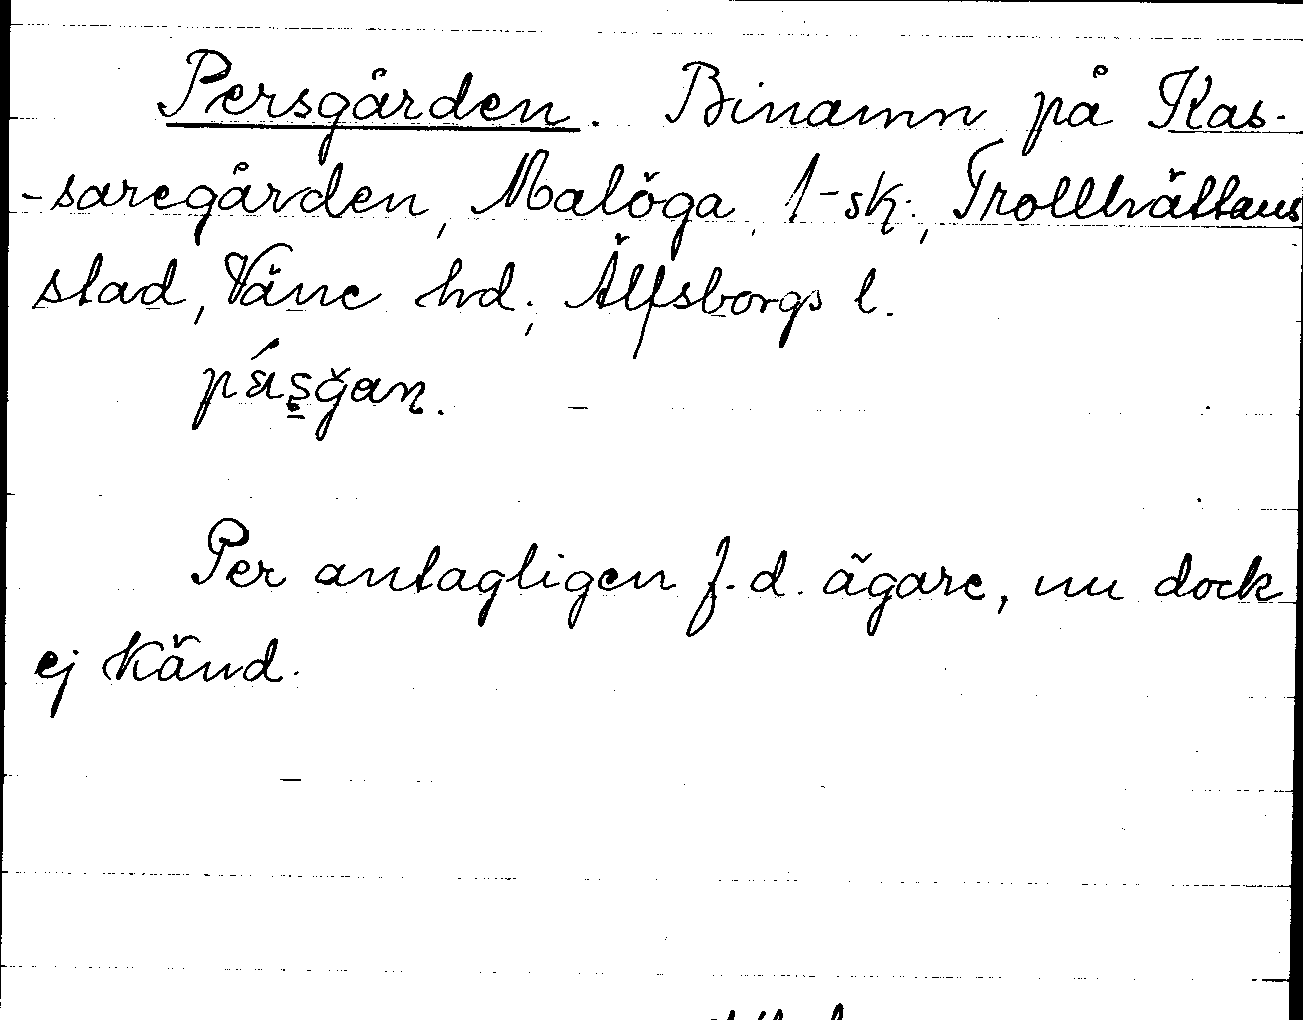 Persgården. Binamn på Kas-
-saregården, Malöga, 1-sk., Trollhättans
stad, Väne hd., Älfsborgs l.
Per antagligen f.d. ägare, nu dock
ej känd.